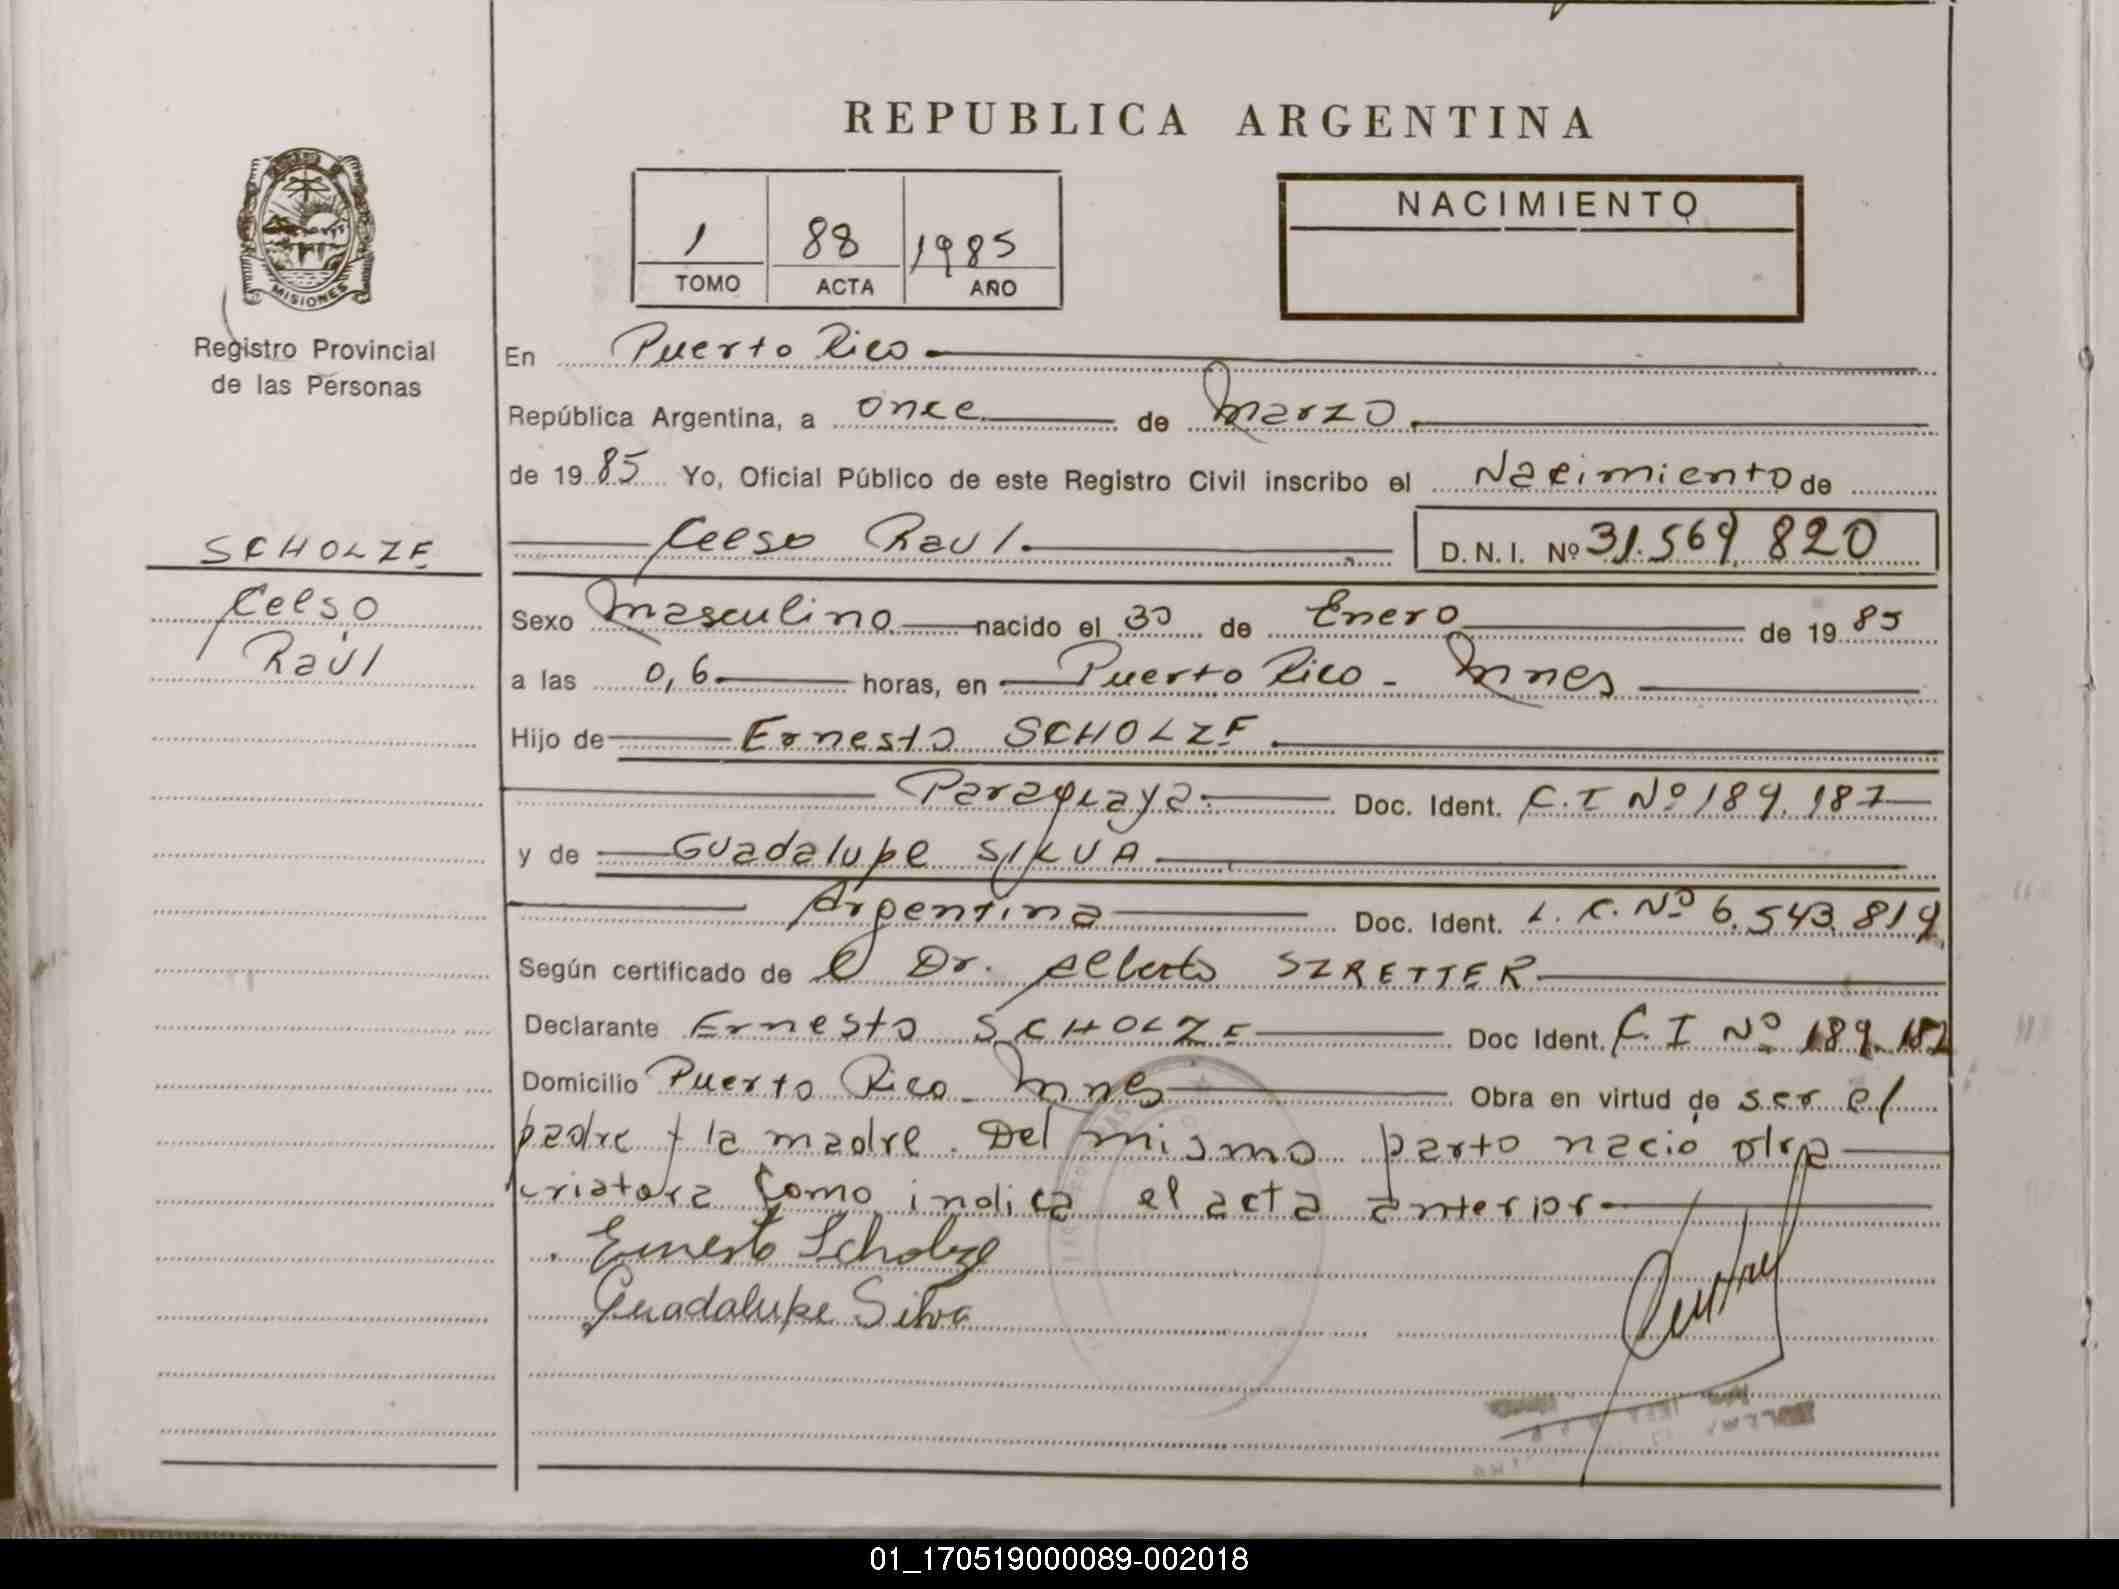 REPUBLICA ARGENTINA
1 88 1985
TOMO ACTA AÑO
NACIMIENTO
MISIONES
Registro Provincial
de las Personas
SCHOLZE
Celso
Raúl
En Puerto Rico
República Argentina, a once de Marzo
de 1985 Yo, Oficial Público de este Registro Civil inscribo el Nacimiento de
Celso Raul. D.N.I. Nº 31.569.820
Sexo Masculino nacido el 30 de Enero de 1985
a las 0,6 horas, en Puerto Rico - Mnes
Hijo de Ernesto SCHOLZE.
Paraguaya. Doc. Ident. C.I Nº 189.187
y de Guadalupe SILVA
Argentina Doc. Ident. L.C. Nº 6.543.819
Según certificado de el Dr. Alberto SZRETTER
Declarante Ernesto SCHOLZE Doc Ident. C.I Nº 189.187
Domicilio Puerto Rico - Mnes Obra en virtud de ser el
padre y la madre. Del mismo parto nació otra
criatura como indica el acta anterior
Ernesto Scholze
Guadalupe Silva
01_170519000089-002018